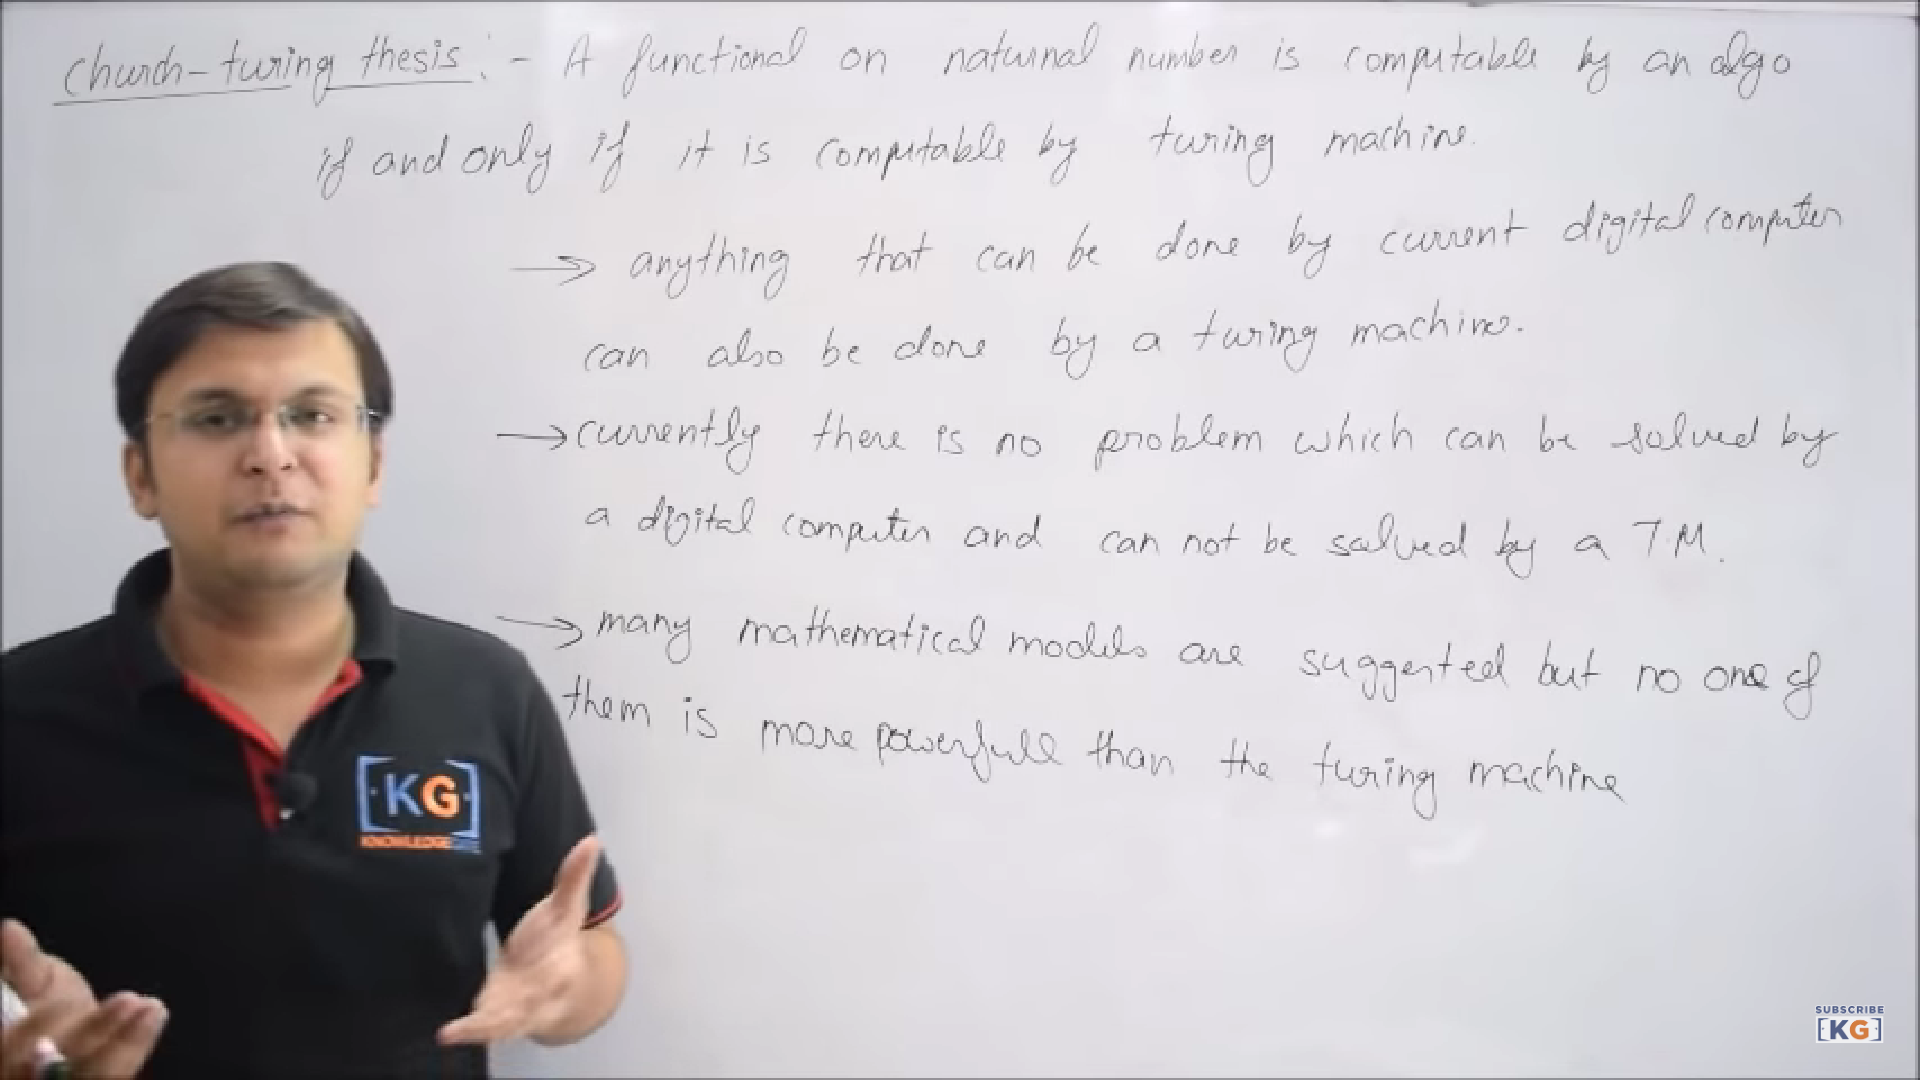 Church-turing thesis :- A functional on natural number is computable by an algo
if and only if it is computable by turing machine.
→ anything that can be done by current digital computer
can also be done by a turing machine.
→ currently there is no problem which can be solved by
a digital computer and can not be solved by a T.M.
→ many mathematical models are suggested but no one of
them is more powerfull than the turing machine
[KG]
KNOWLEDGE
SUBSCRIBE
[KG]